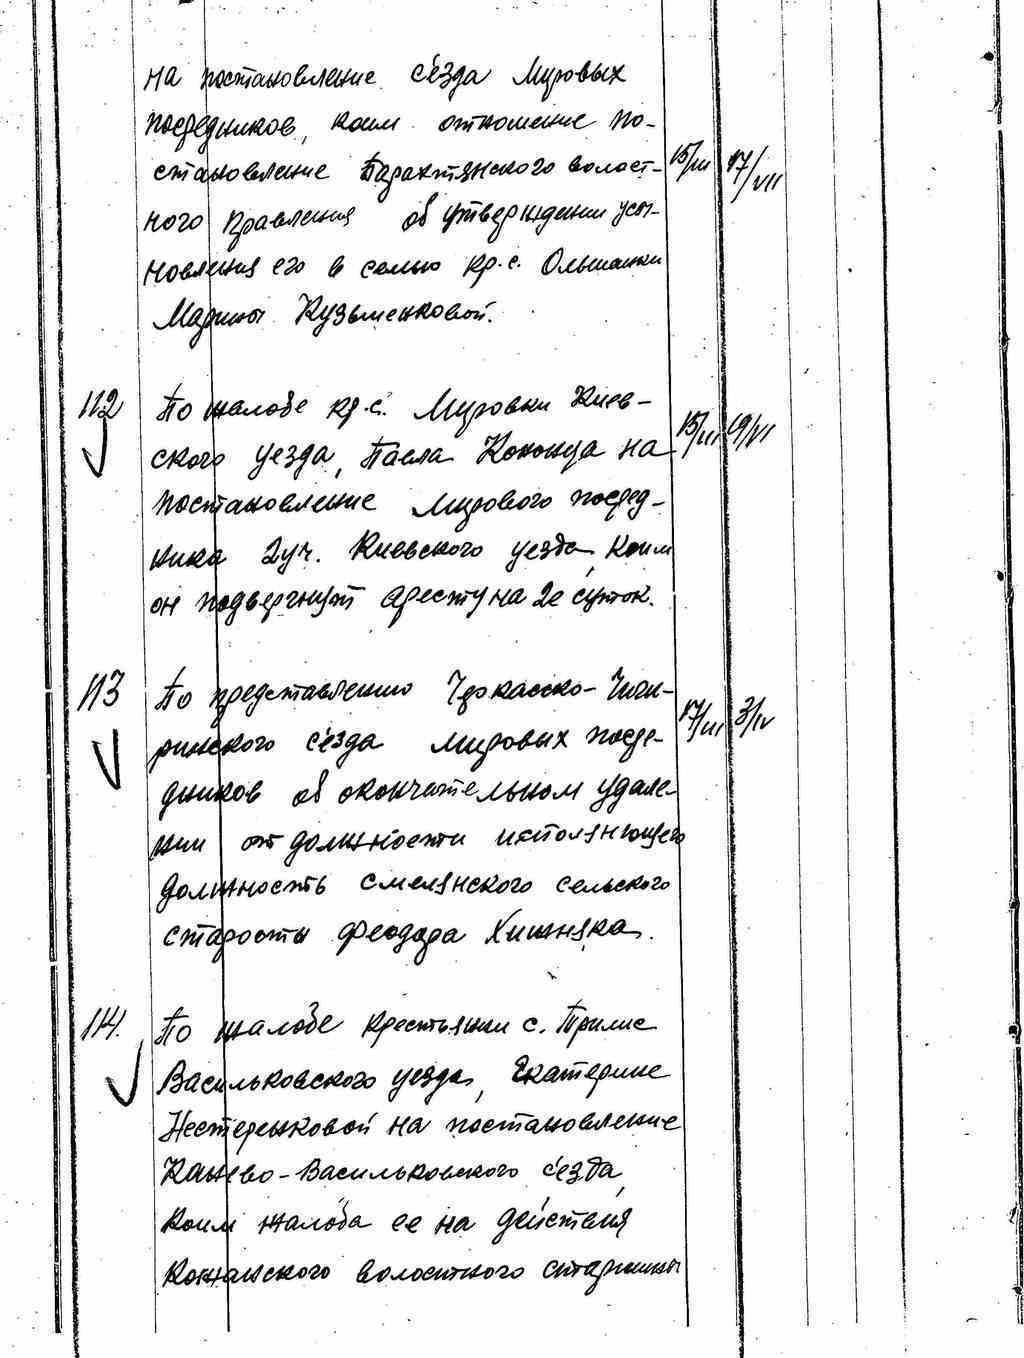 на постановление с'езда Мировых
посредников, коим отношение по-
становление Барахтянского волост- 15/III 17/VII
ного правления об утверждении усы-
новления его в семью кр. с. Ольшанки
Марины Кузьменковой.
112 По жалобе кр. с. Мировки Киев-
ского уезда, Павла Кононца на 15/III 19/VI
постановление мирового посред-
ника 2 уч. Киевского уезда, коим
он подвергнут аресту на 2е суток.
113 По представлению Черкасско-Чиги-
ринского с'езда мировых посре- 17/III 3/IV
дников об окончательном удале-
нии от должности исполняющего
должность смелянского сельского
старосты Феодора Хижняка.
114. По жалобе крестьянки с. Прилис
Васильковского уезда, Екатерине
Нестеренковой на постановление
Канево-Васильковского с'езда,
коим жалоба ее на действия
Кожанского волостного старшины